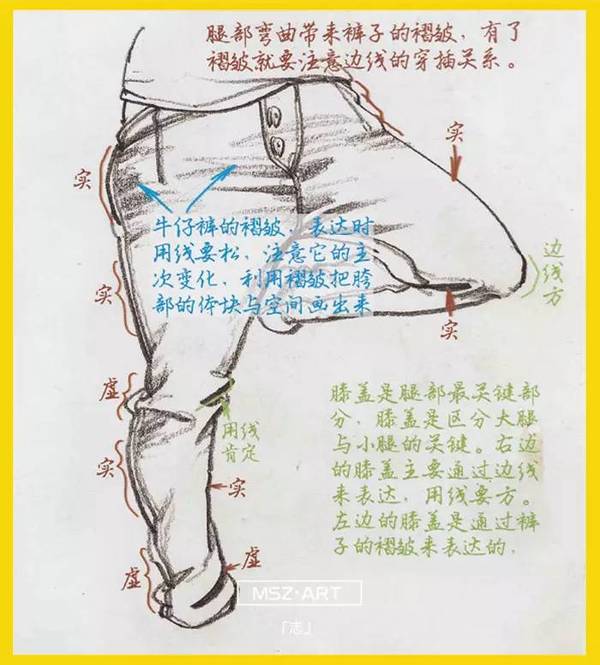 腿部弯曲带来裤子的褶皱，有了
褶皱就要注意边线的穿插关系。
实
实
牛仔裤的褶皱，表达时
用线要松，注意它的主
次变化，利用褶皱把胯
部的体块与空间画出来
边线方
实
实
虚
用线
肯定
膝盖是腿部最关键部
分，膝盖是区分大腿
与小腿的关键。右边
的膝盖主要通过边线
来表达，用线要方。
左边的膝盖是通过裤
子的褶皱来表达的，
实
实
虚
虚
MSZ·ART
「志」